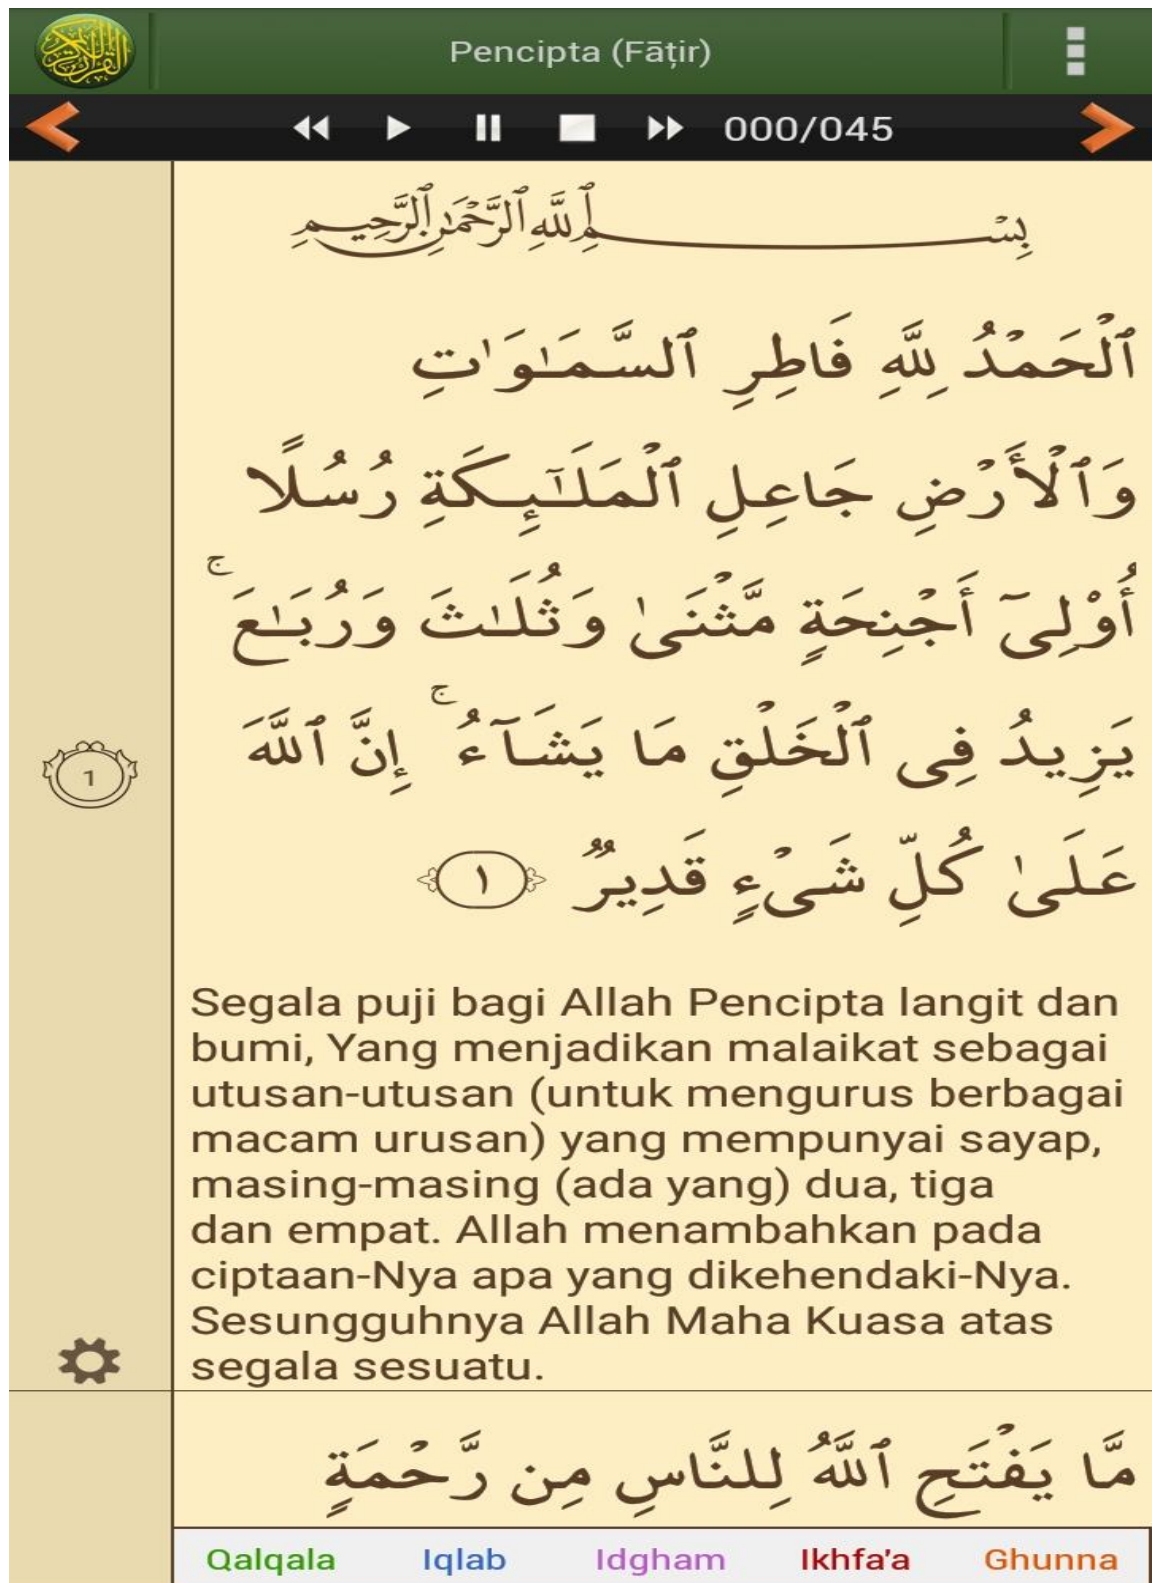 القرآن الكريم
Pencipta (Fāṭir)
000/045
بِسْمِ ٱللَّهِ ٱلرَّحْمَٰنِ ٱلرَّحِيمِ
ٱلْحَمْدُ لِلَّهِ فَاطِرِ ٱلسَّمَٰوَٰتِ
وَٱلْأَرْضِ جَاعِلِ ٱلْمَلَٰٓئِكَةِ رُسُلًا
أُو۟لِىٓ أَجْنِحَةٍ مَّثْنَىٰ وَثُلَٰثَ وَرُبَٰعَ ۚ
يَزِيدُ فِى ٱلْخَلْقِ مَا يَشَآءُ ۚ إِنَّ ٱللَّهَ
1
عَلَىٰ كُلِّ شَىْءٍ قَدِيرٌ ١
Segala puji bagi Allah Pencipta langit dan
bumi, Yang menjadikan malaikat sebagai
utusan-utusan (untuk mengurus berbagai
macam urusan) yang mempunyai sayap,
masing-masing (ada yang) dua, tiga
dan empat. Allah menambahkan pada
ciptaan-Nya apa yang dikehendaki-Nya.
Sesungguhnya Allah Maha Kuasa atas
segala sesuatu.
مَّا يَفْتَحِ ٱللَّهُ لِلنَّاسِ مِن رَّحْمَةٍ
Qalqala Iqlab Idgham Ikhfa'a Ghunna